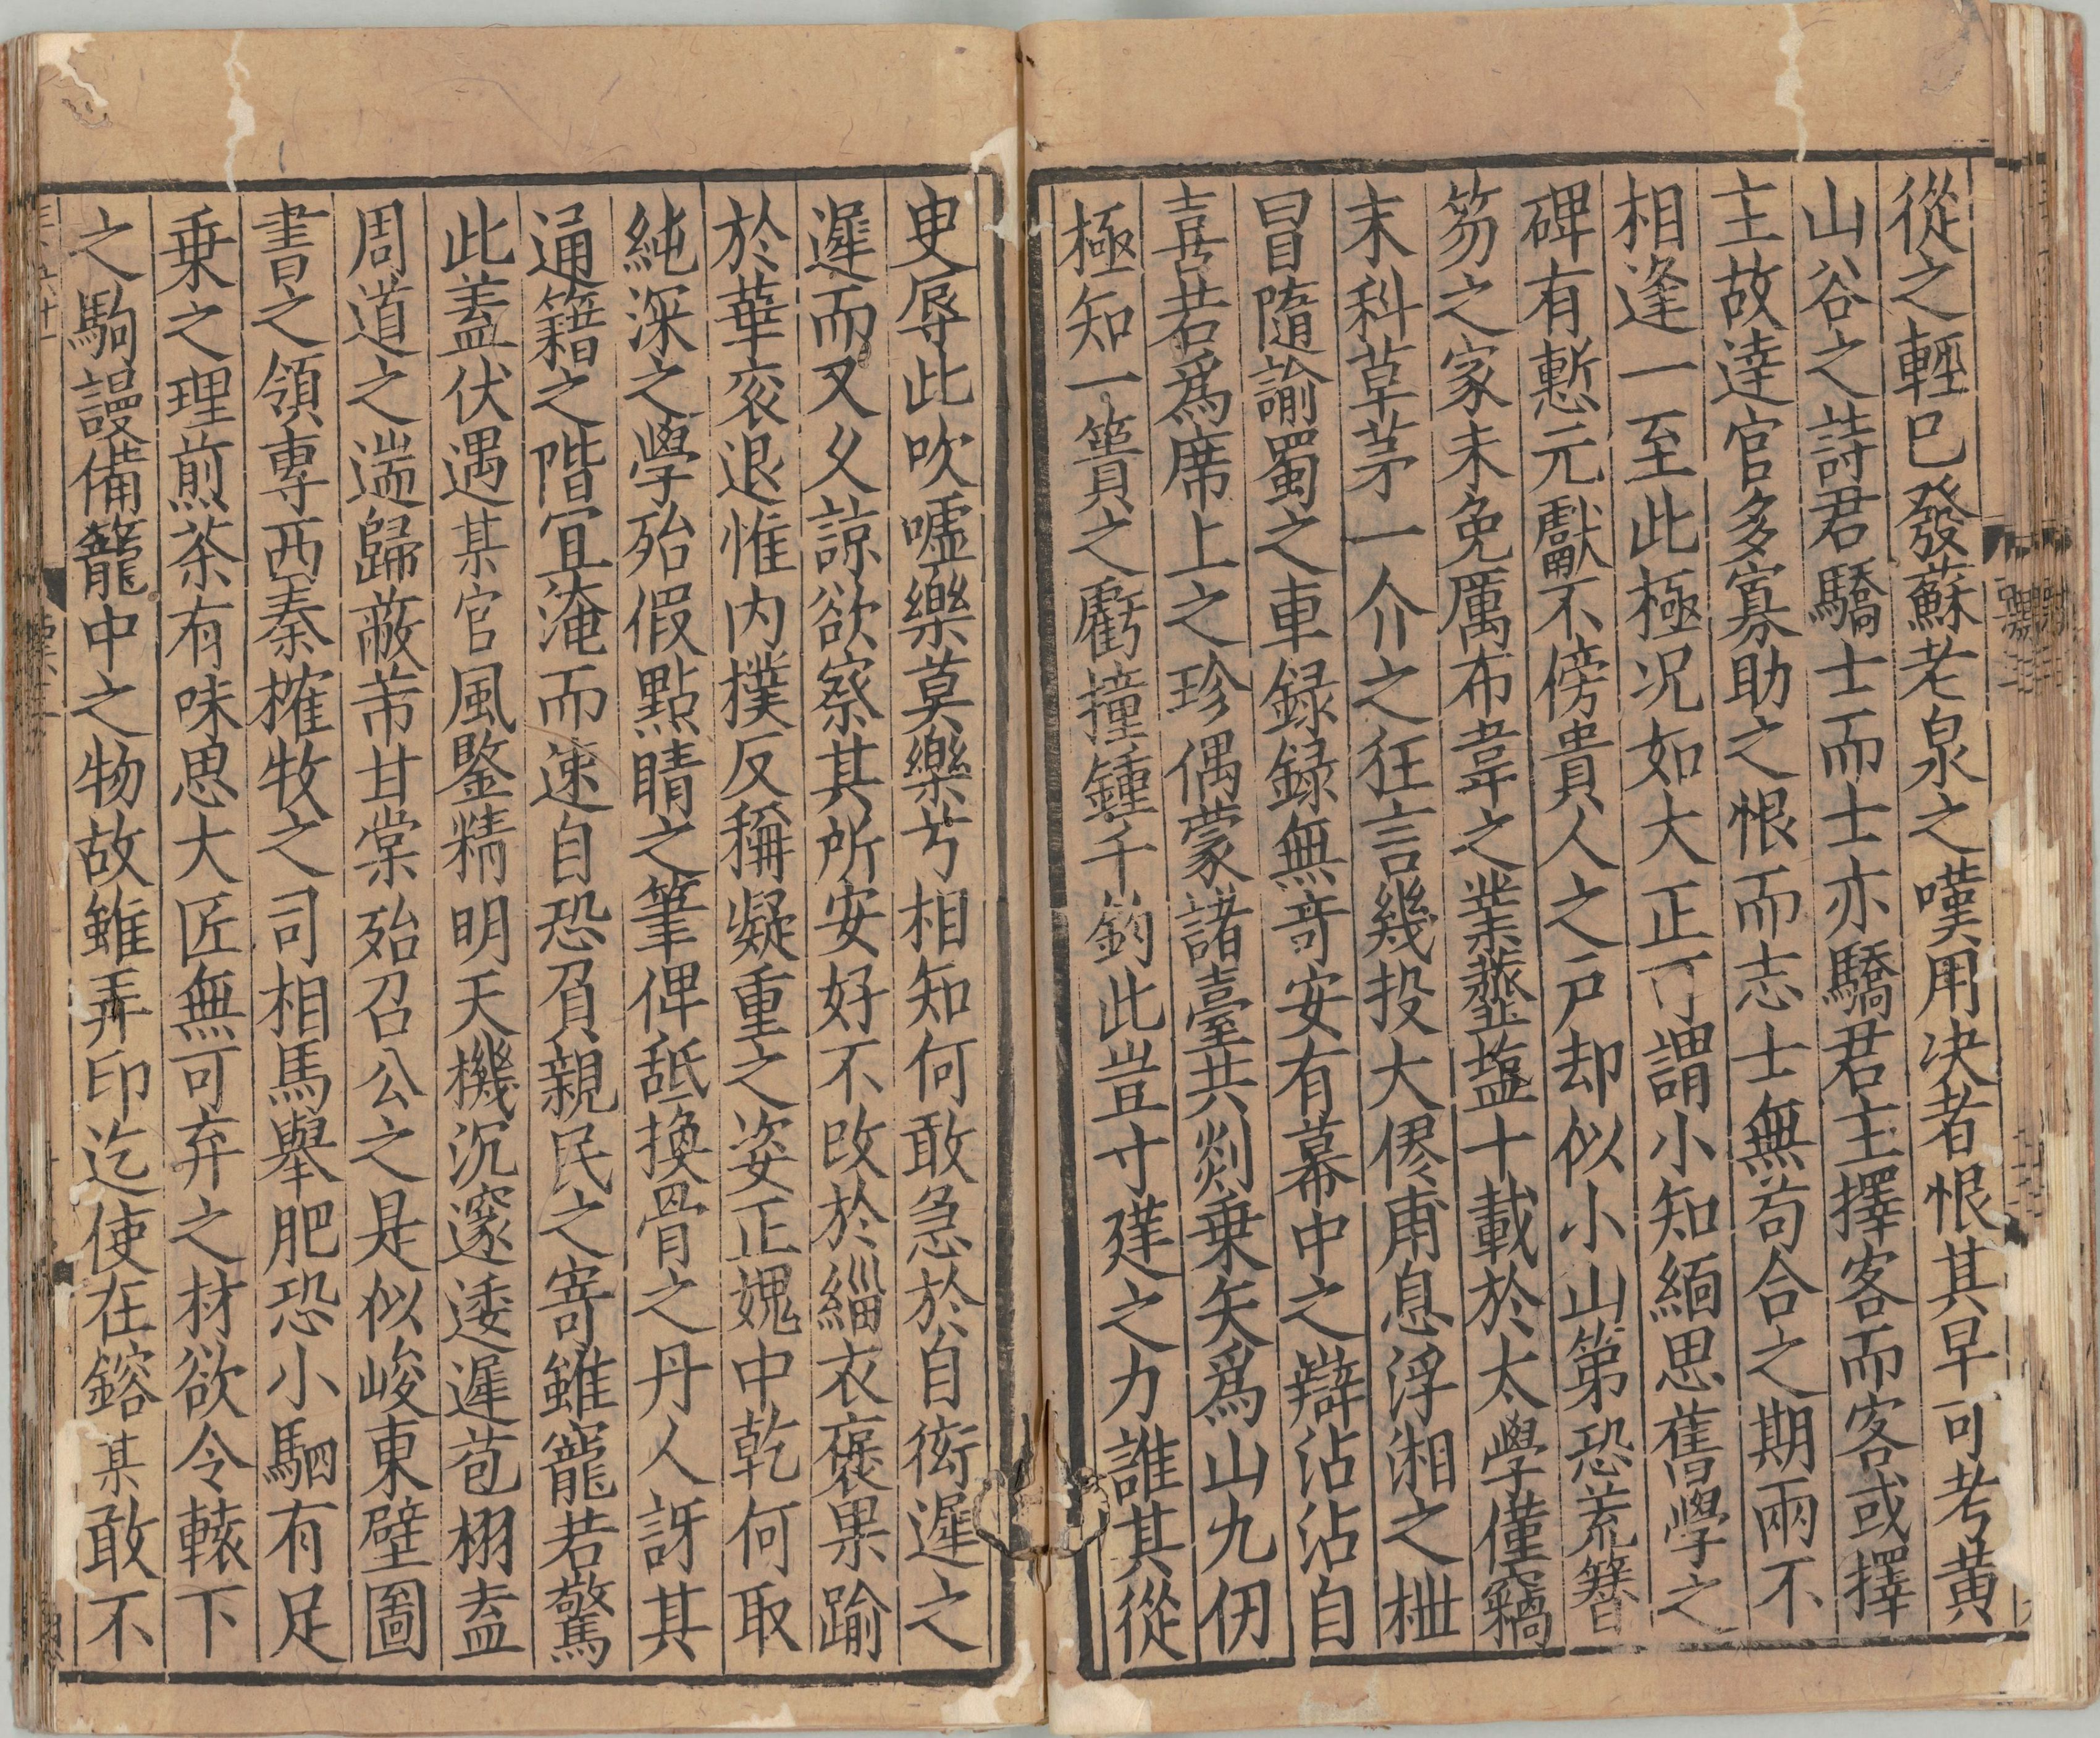 從之輕已發蘇老泉之嘆用决者恨其早可考黄
山谷之詩君驕士而士亦驕君主擇客而客或擇
主故達官多寡助之恨而志士無苟合之期兩不
相逢一至此極况如大正可謂小知緬思舊學之
碑有慙元獻不傍貴人之戸却似小山第恐荒簪
笏之家未免厲布韋之業虀塩十載於太學僅竊
末科草茅一介之狂言幾投大僇甫息浮湘之枻
冒隨諭蜀之車録録無竒安有幕中之辯沾沾自
喜若爲席上之珍偶蒙諸臺共剡乗矢爲山九仞
極知一簣之虧撞鍾千鈞此豈寸莛之力誰其從
臾辱此吹噓樂莫樂兮相知何敢急於自衒遲之
遲而又乆諒欲察其所安好不改於緇衣褒果踰
於華衮退惟内撲反稱凝重之姿正媿中乾何取
純深之學殆假點睛之筆俾舐換骨之丹人訝其
通籍之階宜淹而速自恐負親民之寄雖寵若驚
此盖伏遇某官風鑒精明天機沉邃逶遲苞栩盍
周道之遄歸蔽芾甘棠殆召公之是似峻東壁圖
書之領專西秦榷牧之司相馬舉肥恐小駟有足
乗之理煎茶有味思大匠無可弃之材欲令轅下
之駒謾備籠中之物故雖弄印迄使在鎔某敢不